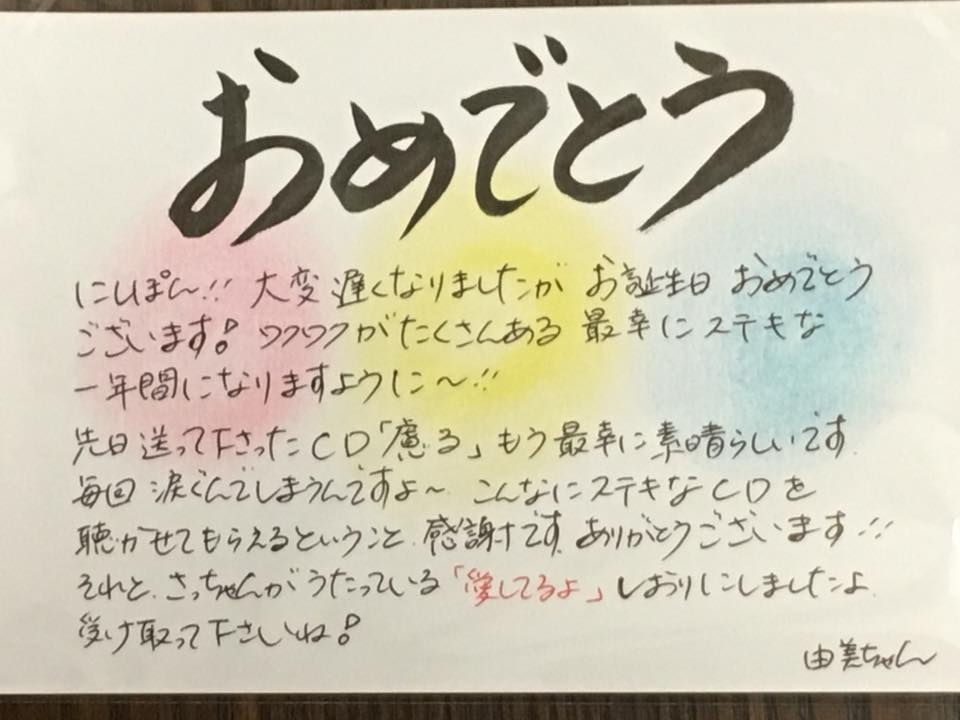 おめでとう
にしぽん!! 大変遅くなりましたが お誕生日 おめでとう
ございます! ワクワクがたくさんある 最幸にステキな
一年間になりますように〜!!
先日送って下さったCD「慮る」もう最幸に素晴らしいです
毎回 涙ぐんでしまうんですよ〜 こんなにステキなCDを
聴かせてもらえるということ、感謝です。ありがとうございます!!
それと、さっちゃんがうたっている「愛してるよ」しおりにしましたよ
受け取って下さいね!
由美ちゃん